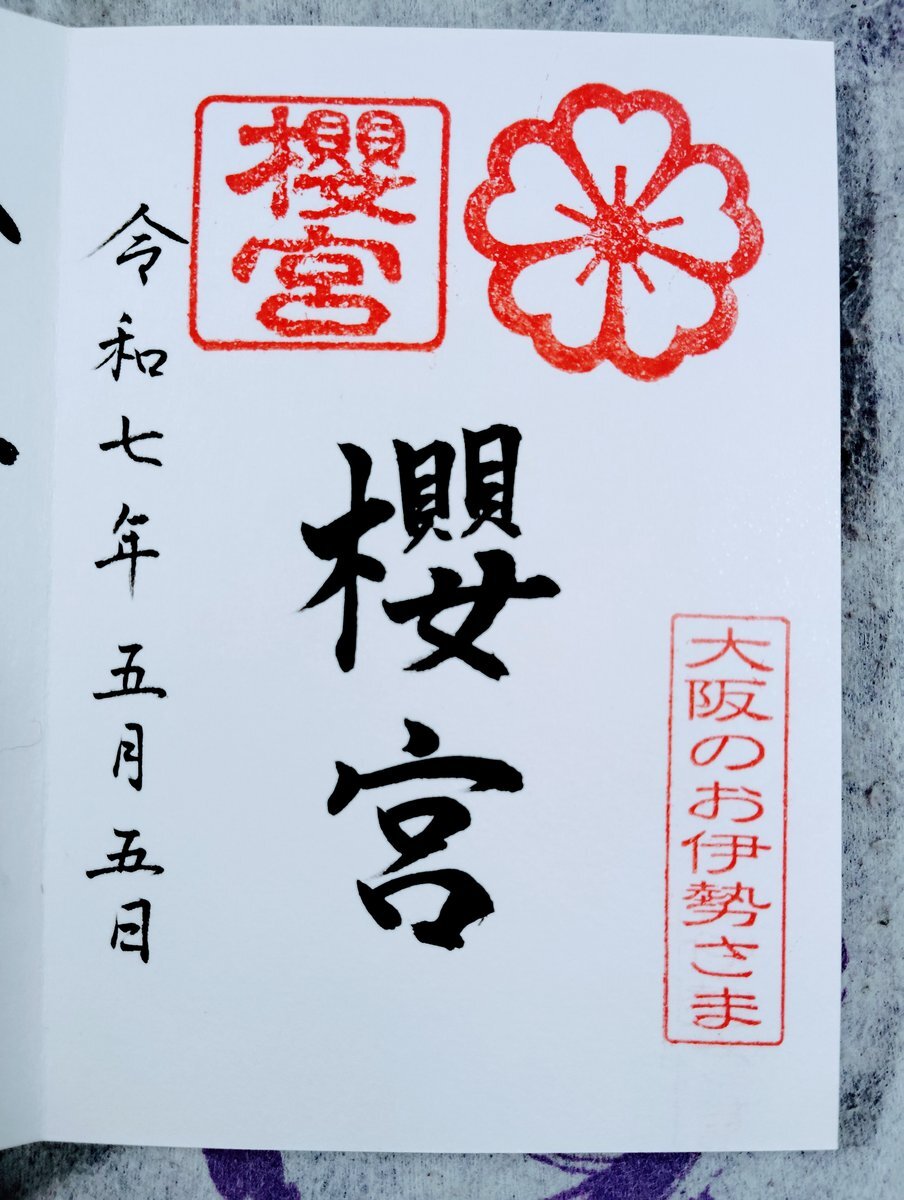 大阪のお伊勢さま
櫻宮
櫻宮
令和七年五月五日